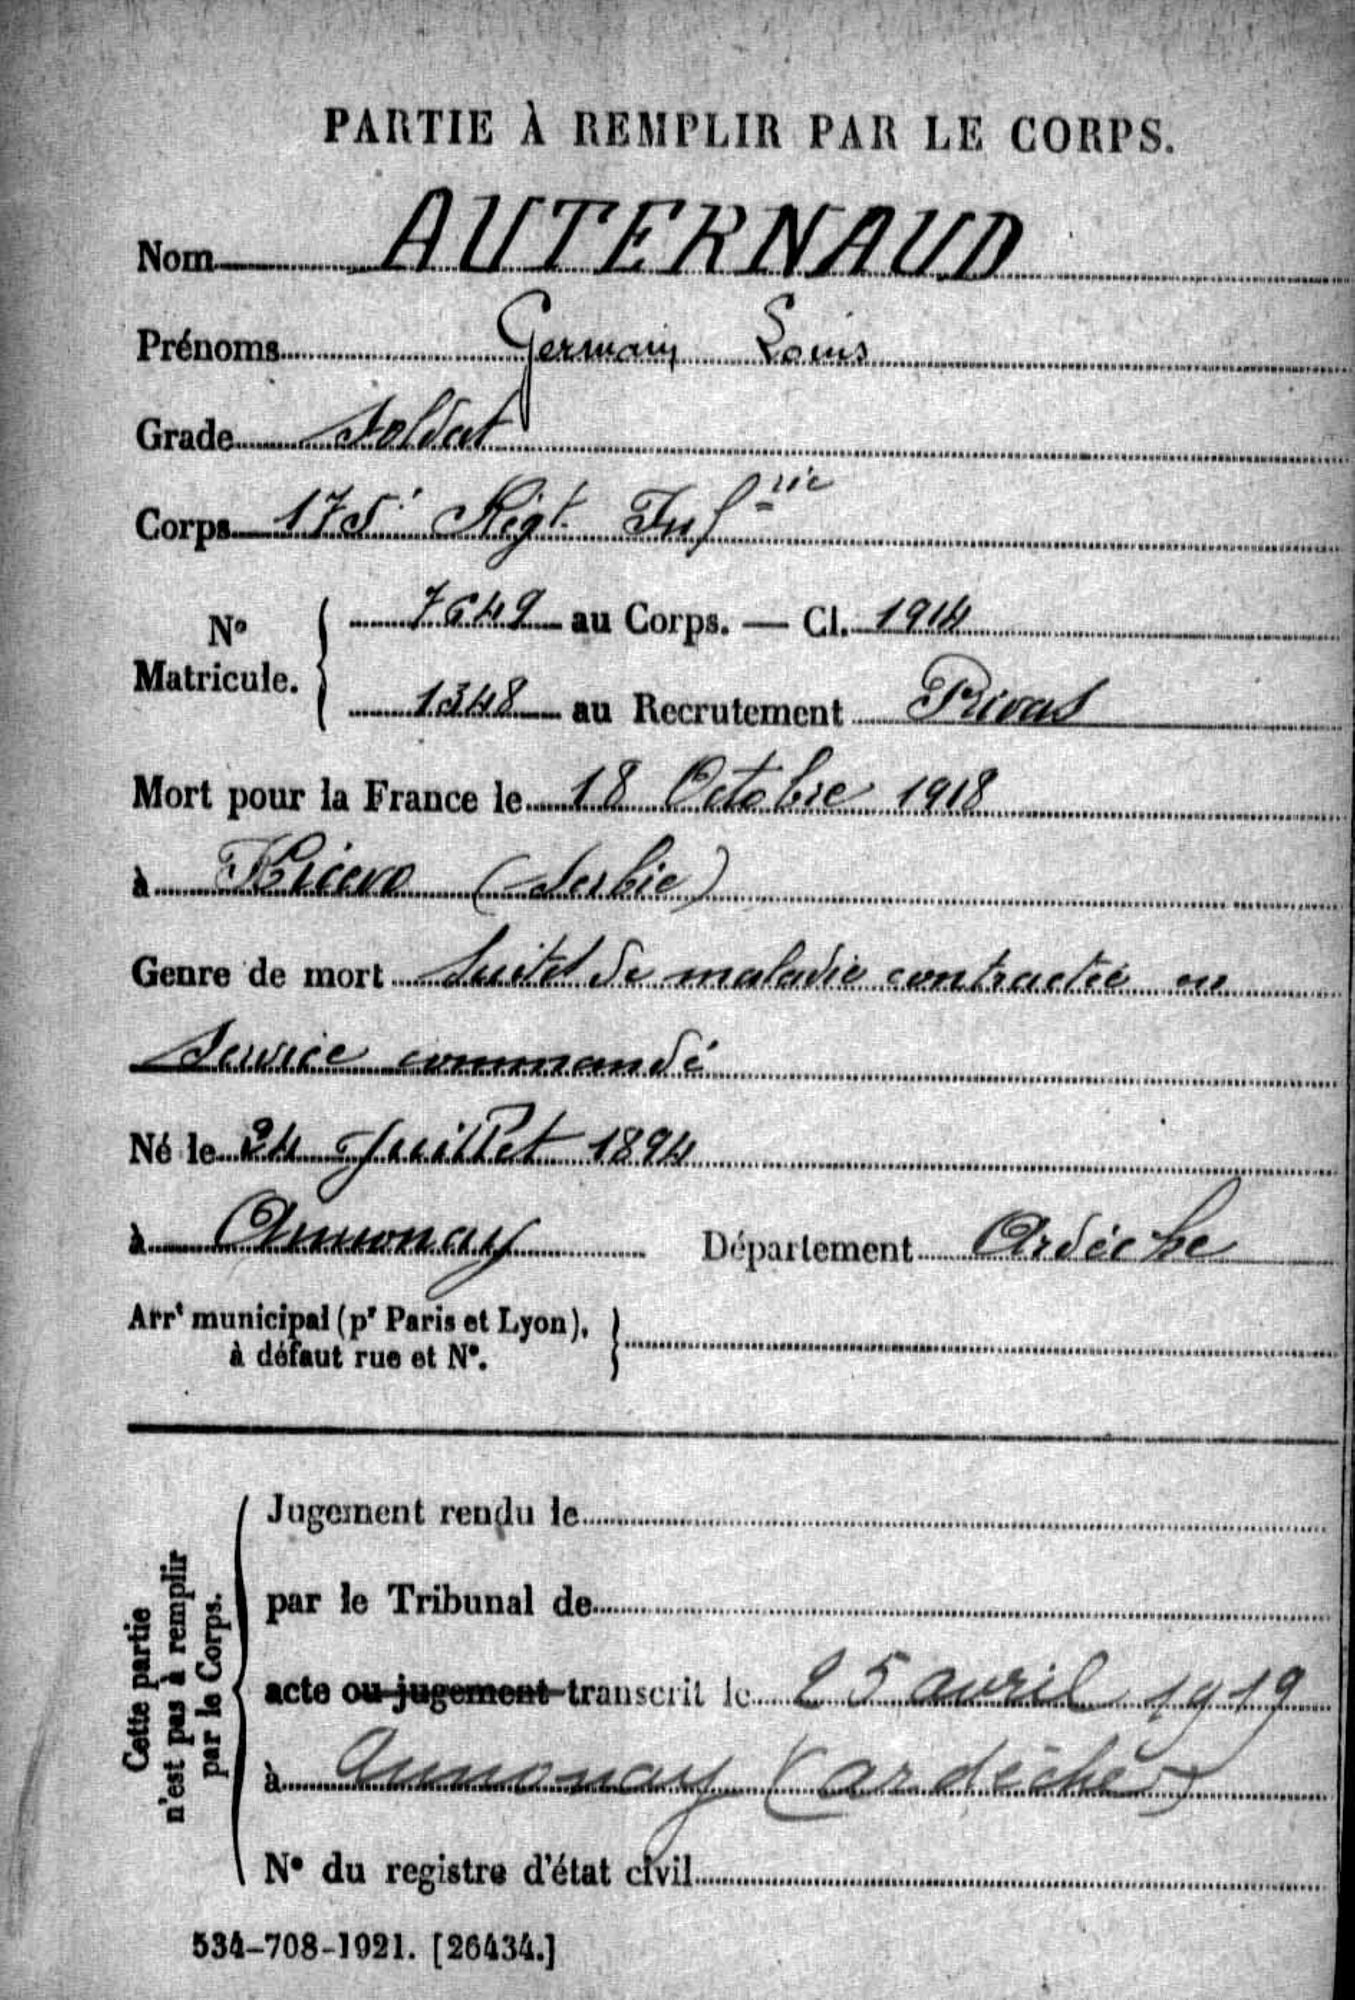 PARTIE À REMPLIR PAR LE CORPS.
Nom AUTERNAUD
Prénoms Germain Louis
Grade Soldat
Corps 175e Régt. Inf rie
No Matricule. { 7649 au Corps. — Cl. 1914
1348 au Recrutement Privas
Mort pour la France le 18 Octobre 1918
à (Serbie)
Genre de mort Suites de maladie contractée en
Service commandé
Né le 24 Juillet 1894
à Annonay Département Ardèche
Arrt municipal (pr Paris et Lyon), à défaut rue et No. }
Cette partie n'est pas à remplir par le Corps. {
Jugement rendu le
par le Tribunal de
acte ou jugement transcrit le 25 avril 1919
à Annonay (ardèche)
No du registre d'état civil
534-708-1921. [26434.]